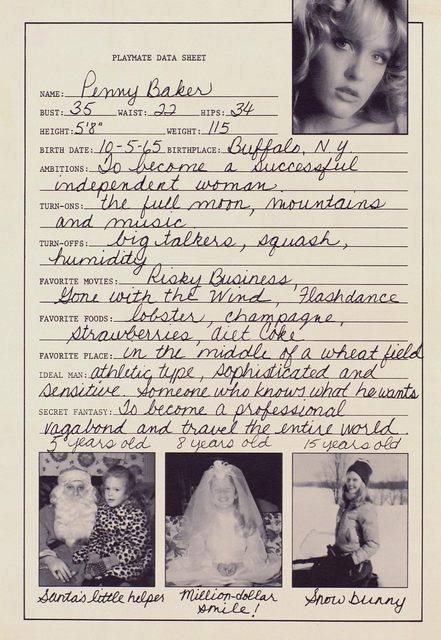 PLAYMATE DATA SHEET
NAME: Penny Baker
BUST: 35 WAIST: 22 HIPS: 34
HEIGHT: 5'8" WEIGHT: 115
BIRTH DATE: 10-5-65 BIRTHPLACE: Buffalo, N.Y.
AMBITIONS: To become a successful
independent woman.
TURN-ONS: the full moon, mountains
and music
TURN-OFFS: big talkers, squash,
humidity
FAVORITE MOVIES: Risky Business,
Gone with the Wind, Flashdance
FAVORITE FOODS: lobster, champagne,
strawberries, diet Coke
FAVORITE PLACE: in the middle of a wheat field
IDEAL MAN: athletic type, sophisticated and
sensitive. Someone who knows what he wants
SECRET FANTASY: To become a professional
vagabond and travel the entire world.
5 years old 8 years old 15 years old
Santa's little helper Million-dollar smile! Snow bunny